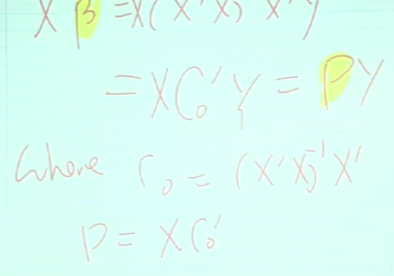 X β = X(X'X) X'Y
= XC₀'Y = PY
Where C₀ = (X'X)⁻¹X'
P = XC₀'